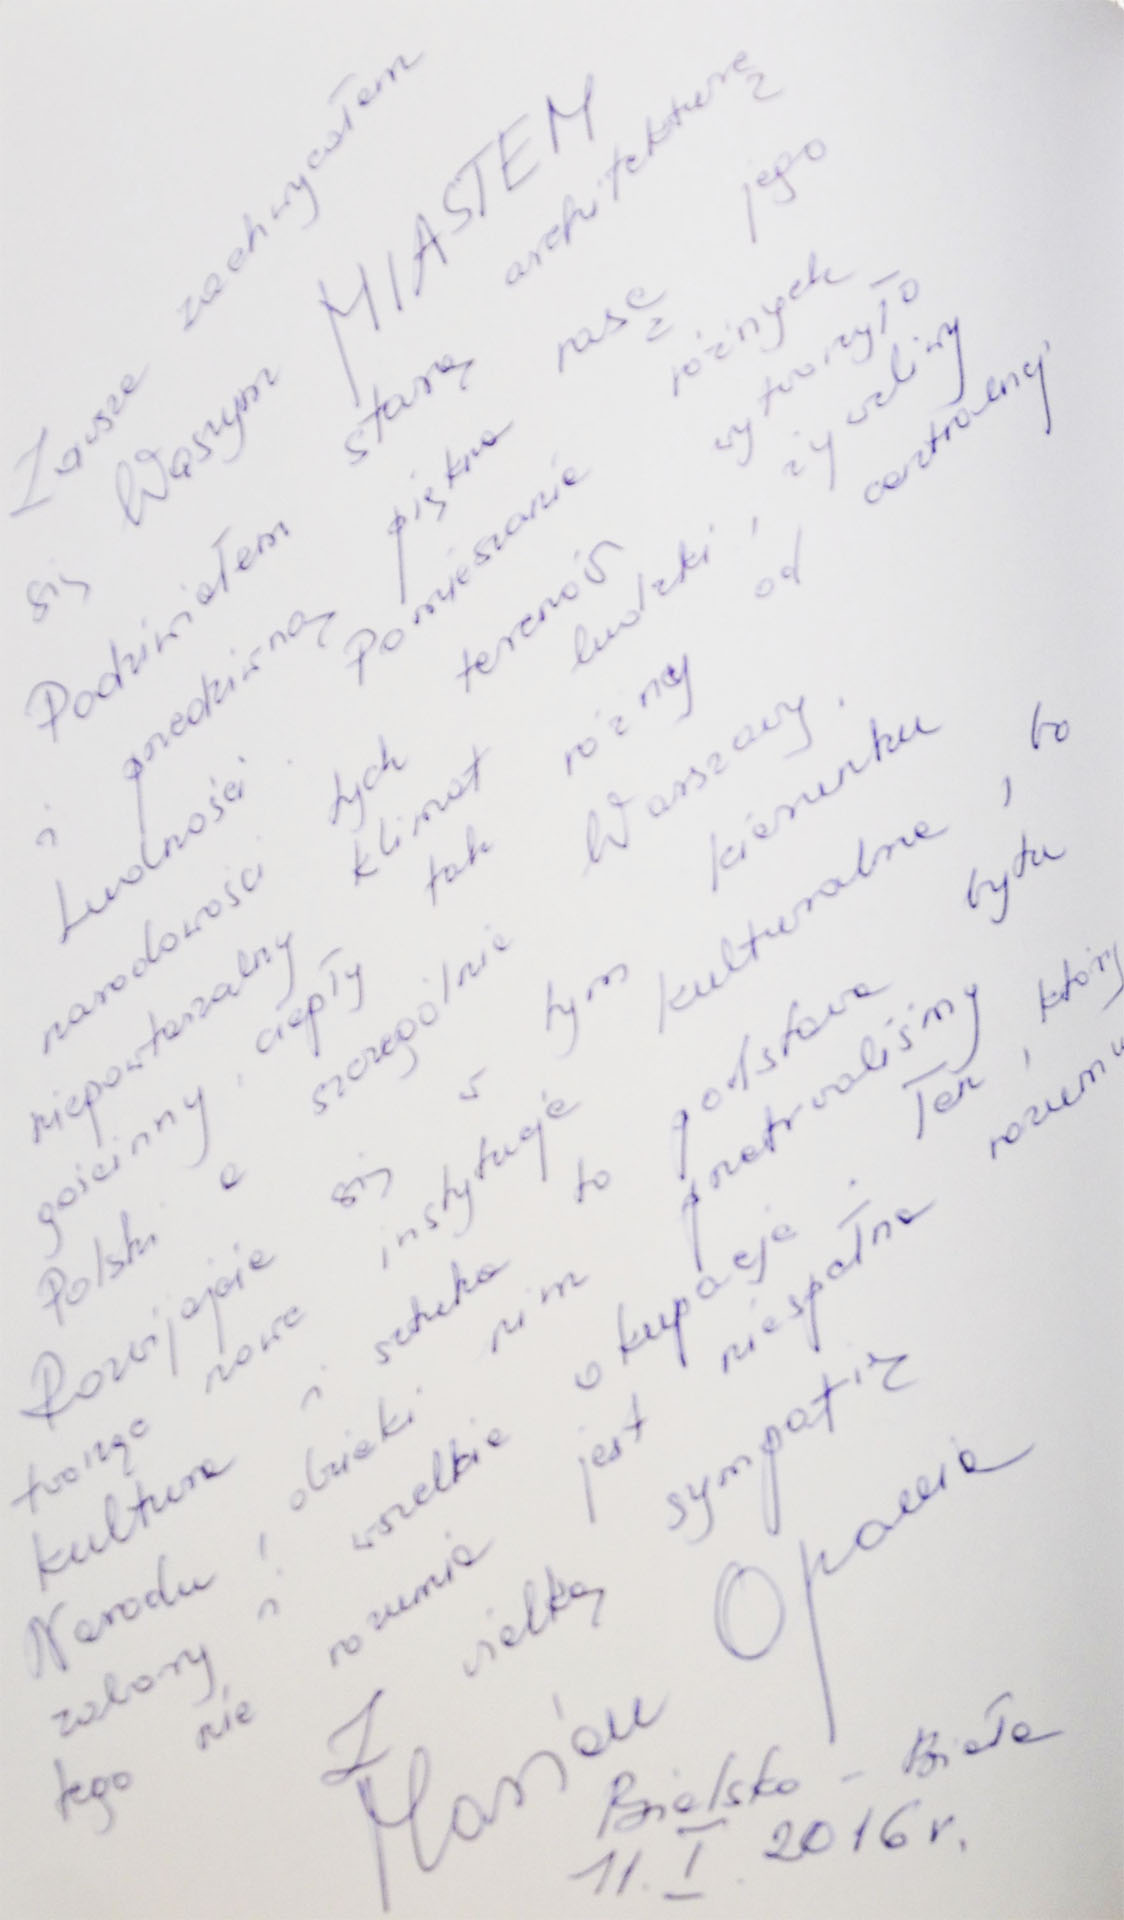 Zawsze zachwycałem
się Waszym MIASTEM
Podziwiałem starą architekturę
i przedziwną piękną rasę jego
Ludności. Pomieszanie różnych
narodowości tych terenów wytworzyło
niepowtarzalny klimat ludzki, życzliwy
gościnny, ciepły tak różny od centralnej
Polski a szczególnie Warszawy.
Rozwijajcie się w tym kierunku
tworząc nowe instytucje kulturalne, bo
kultura i sztuka to podstawa bytu
Narodu, dzięki nim przetrwaliśmy
zabory i wszelkie okupacje. Ten, który
tego nie rozumie jest niespełna rozumu
Z wielką sympatią
Marian Opania
Bielsko-Biała
11.I.2016 r.